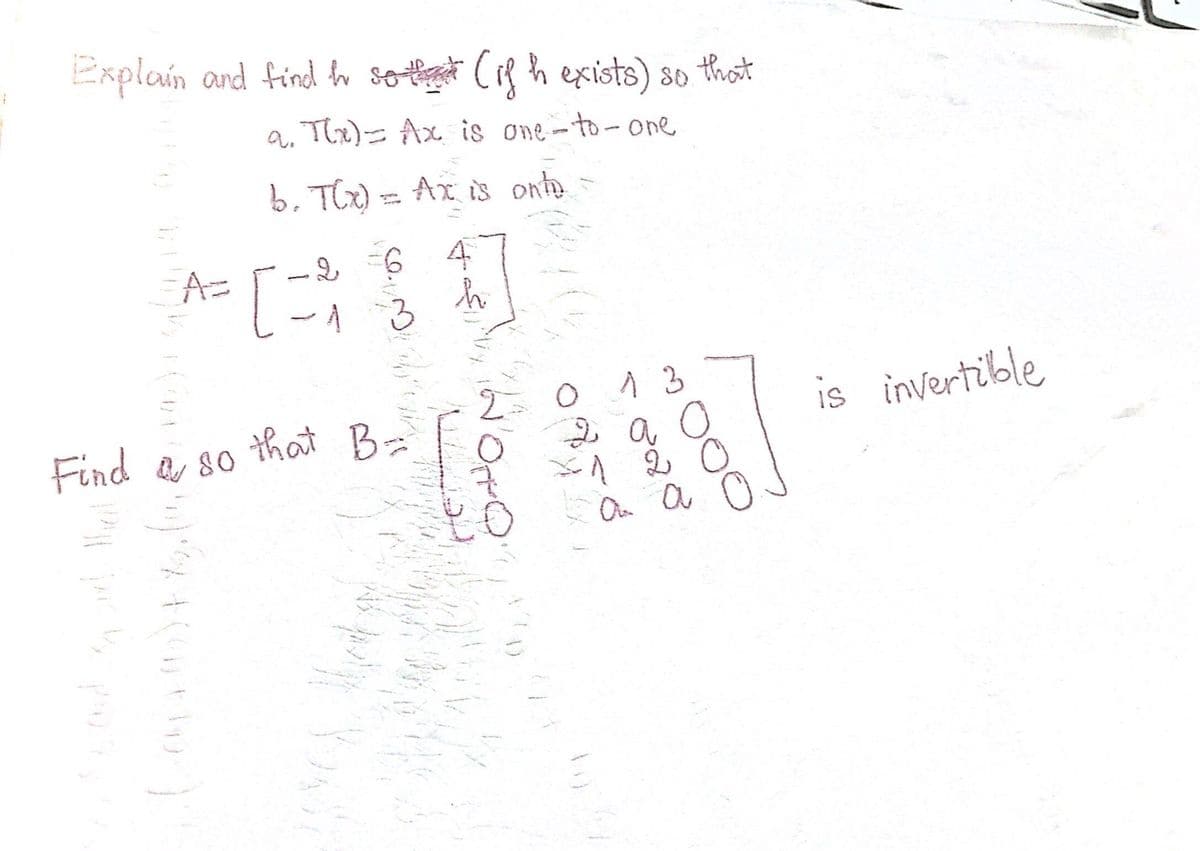 Explain and find h so that (if h exists) so that
a. T(x) = Ax is one-to-one
b. T(x) = Ax is onto
A= [ -2 -6 4
-1 3 h ]
Find a so that B= [ 2 0 1 3
0 2 a 0
7 -1 2 0
0 a a 0 ] is invertible